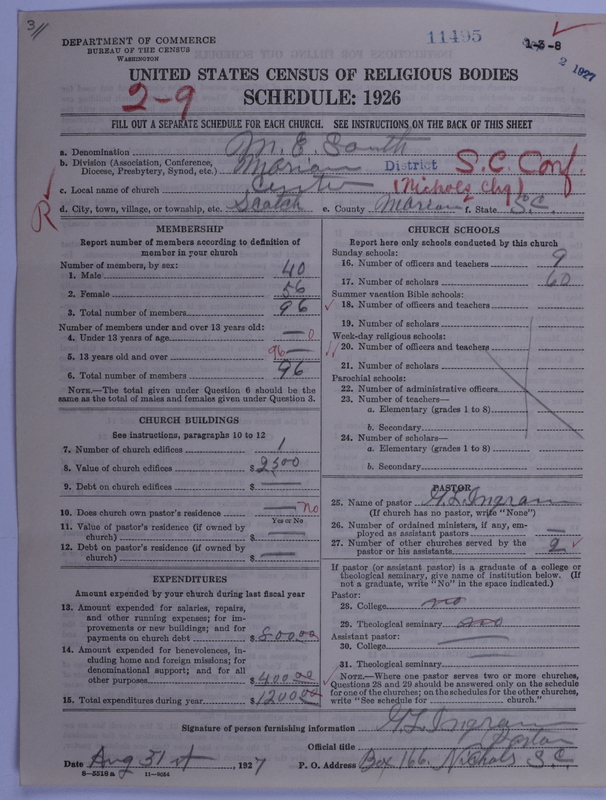 3
DEPARTMENT OF COMMERCE
BUREAU OF THE CENSUS
WASHINGTON
11495
1-3-8
2 1927
UNITED STATES CENSUS OF RELIGIOUS BODIES
2-9
SCHEDULE: 1926
FILL OUT A SEPARATE SCHEDULE FOR EACH CHURCH. SEE INSTRUCTIONS ON THE BACK OF THIS SHEET
a. Denomination M. E. South
b. Division (Association, Conference, Diocese, Presbytery, Synod, etc.) Marion District S.C. Conf.
c. Local name of church Center (Nichols Chg)
R
d. City, town, village, or township, etc. e. County Marion f. State S.C.
MEMBERSHIP
Report number of members according to definition of
member in your church
Number of members, by sex:
1. Male 40
2. Female 56
3. Total number of members 96
Number of members under and over 13 years old:
4. Under 13 years of age — 0
5. 13 years old and over 96 —
6. Total number of members 96
NOTE.—The total given under Question 6 should be the
same as the total of males and females given under Question 3.
CHURCH BUILDINGS
See instructions, paragraphs 10 to 12
7. Number of church edifices 1
8. Value of church edifices $ 2500
9. Debt on church edifices $ —
10. Does church own pastor's residence — no
Yes or No
11. Value of pastor's residence (if owned by
church) $ —
12. Debt on pastor's residence (if owned by
church) $ —
EXPENDITURES
Amount expended by your church during last fiscal year
13. Amount expended for salaries, repairs,
and other running expenses; for im-
provements or new buildings; and for
payments on church debt $ 800.00
14. Amount expended for benevolences, in-
cluding home and foreign missions; for
denominational support; and for all
other purposes $ 400.00
15. Total expenditures during year $ 1200.00
CHURCH SCHOOLS
Report here only schools conducted by this church
Sunday schools:
16. Number of officers and teachers 9
17. Number of scholars 60
Summer vacation Bible schools:
18. Number of officers and teachers
19. Number of scholars
Week-day religious schools:
20. Number of officers and teachers
21. Number of scholars
Parochial schools:
22. Number of administrative officers
23. Number of teachers—
a. Elementary (grades 1 to 8)
b. Secondary
24. Number of scholars—
a. Elementary (grades 1 to 8)
b. Secondary
PASTOR
25. Name of pastor G. L. Ingram
(If church has no pastor, write "None")
26. Number of ordained ministers, if any, em-
ployed as assistant pastors —
27. Number of other churches served by the
pastor or his assistants 2
If pastor (or assistant pastor) is a graduate of a college or
theological seminary, give name of institution below. (If
not a graduate, write "No" in the space indicated.)
Pastor:
28. College no
29. Theological seminary no
Assistant pastor:
30. College —
31. Theological seminary —
NOTE.—Where one pastor serves two or more churches,
Questions 28 and 29 should be answered only on the schedule
for one of the churches; on the schedules for the other churches,
write "See schedule for church."
Signature of person furnishing information G. L. Ingram
Official title Pastor
Date Aug 31st, 1927 P. O. Address Box 166. Nichols S.C.
8—5518a 11—9054